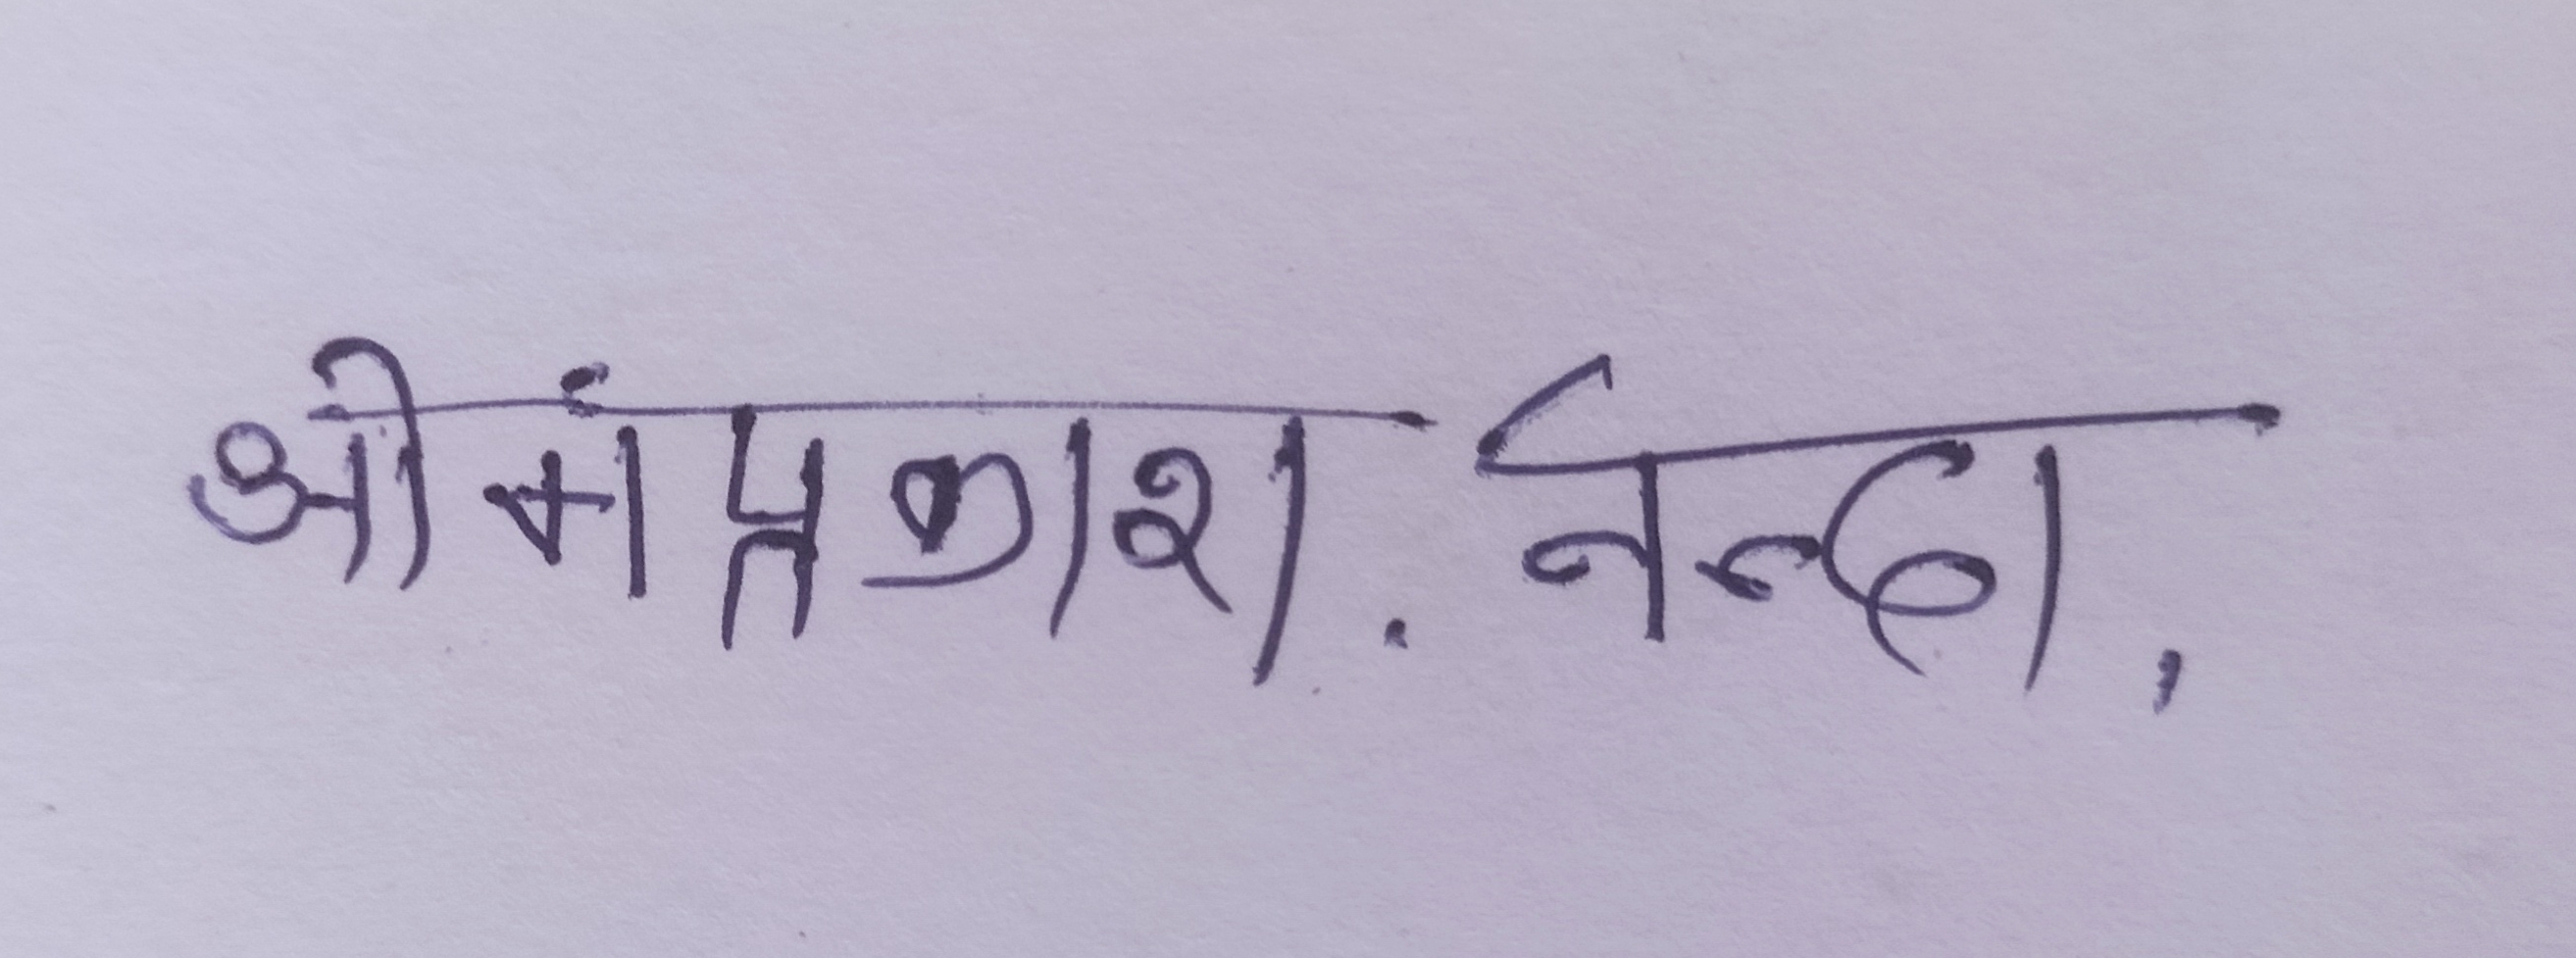 ओमंप्रकाश. नन्दा,